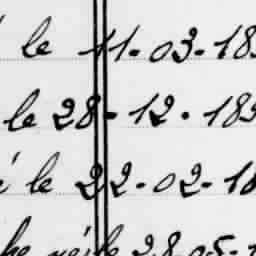 le 11-03-18
le 28-12-18
le 22-02-18
né le 28-05-